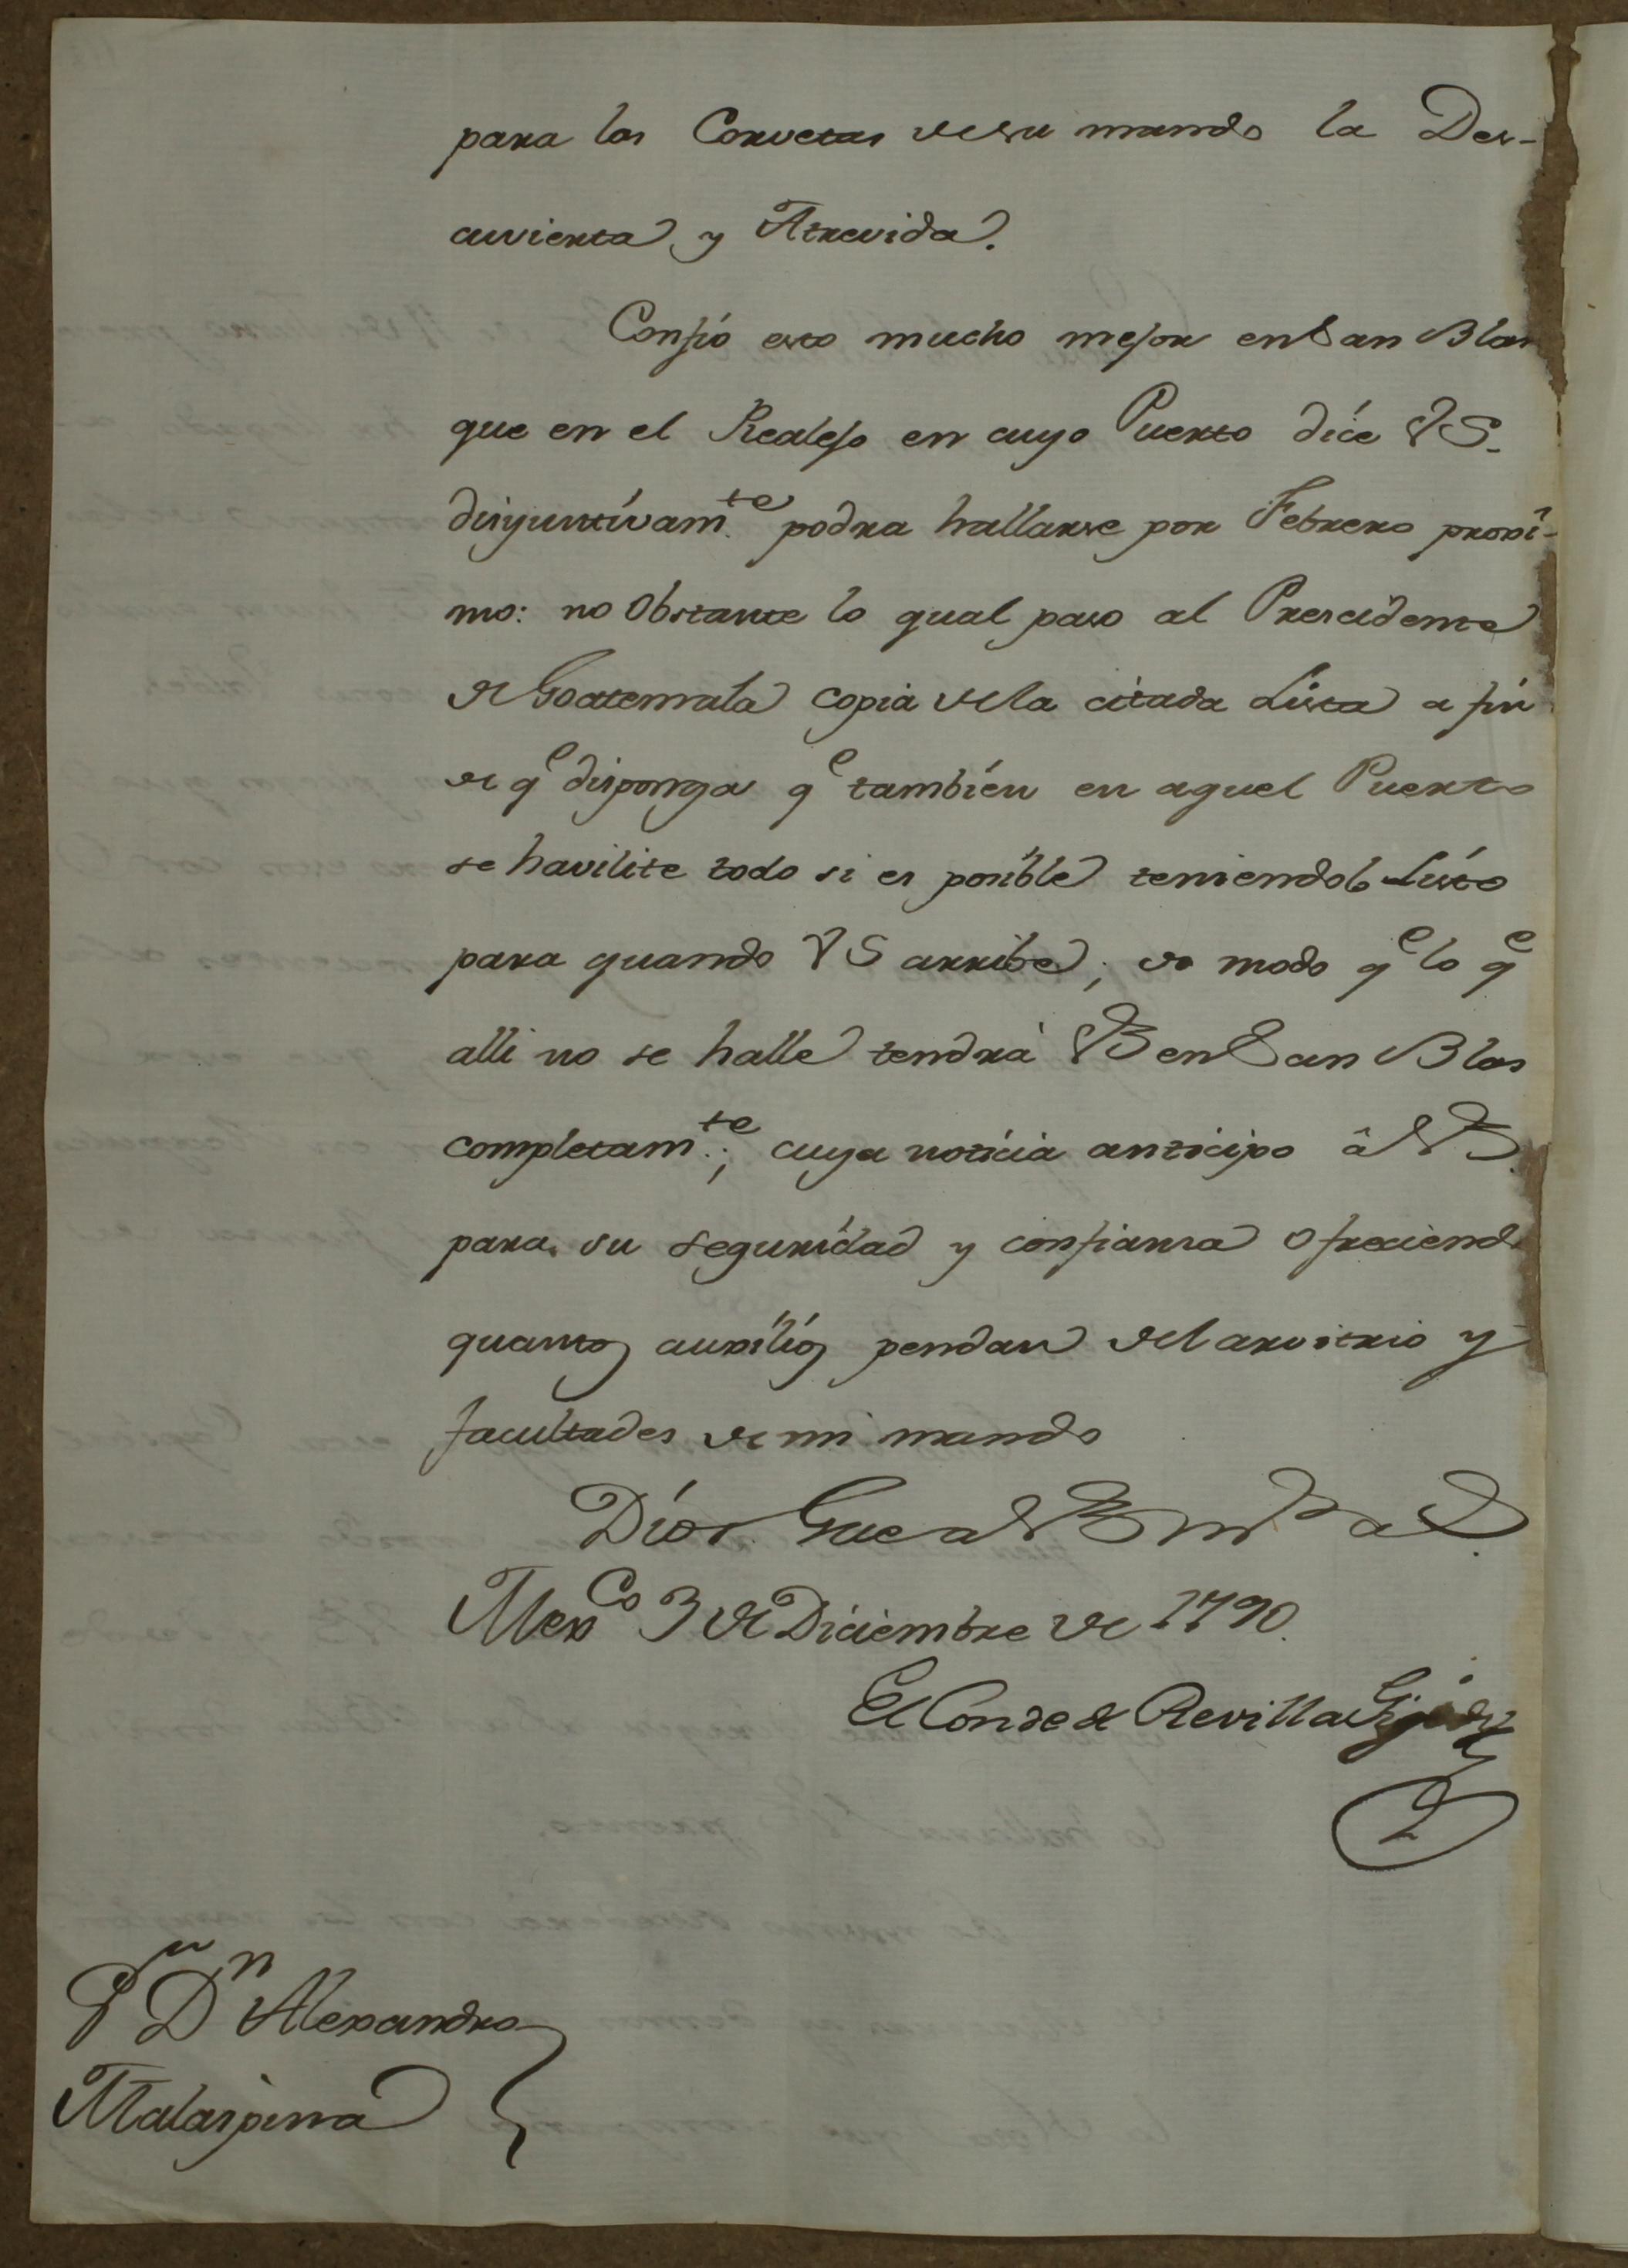 para las Corvetas de su mando la Des-
cuvierta y Atrevida.
Confio esto mucho mejor en San Blas
que en el Realejo en cuyo Puerto díce VS.
disyuntívamte. podra hallarse por Febrero proxî-
mo: no Obstante lo qual paso al Presidente
de Goatemala copia de la citada Lista a fin
de qe disponga qe tambíen en aquel Puerto
se havilite todo si es posíble teniendolo Lísto
para quando VS arribe; de modo qe lo qe
alli no se halle tendrá VS en San Blas
completamte.; cuya notícia anticipo â VS.
para su seguridad y confianza ofreciendo
quantos auxílíos pendan del arvitrio y
facultades de mi mando
Díos Gue a VS ms as.
Mexco 3 de Diciembre de 1790.
El Conde de Revilla Gigedo
Sr Dn Alexandro
Malaspina